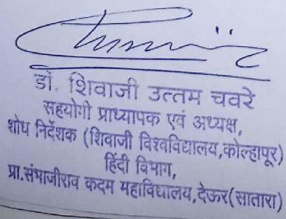 डॉ. शिवाजी उत्तम चवरे
सहयोगी प्राध्यापक एवं अध्यक्ष,
शोध निर्देशक (शिवाजी विश्वविद्यालय,कोल्हापूर)
हिंदी विभाग,
प्रा.संभाजीराव कदम महाविद्यालय,देऊर(सातारा)